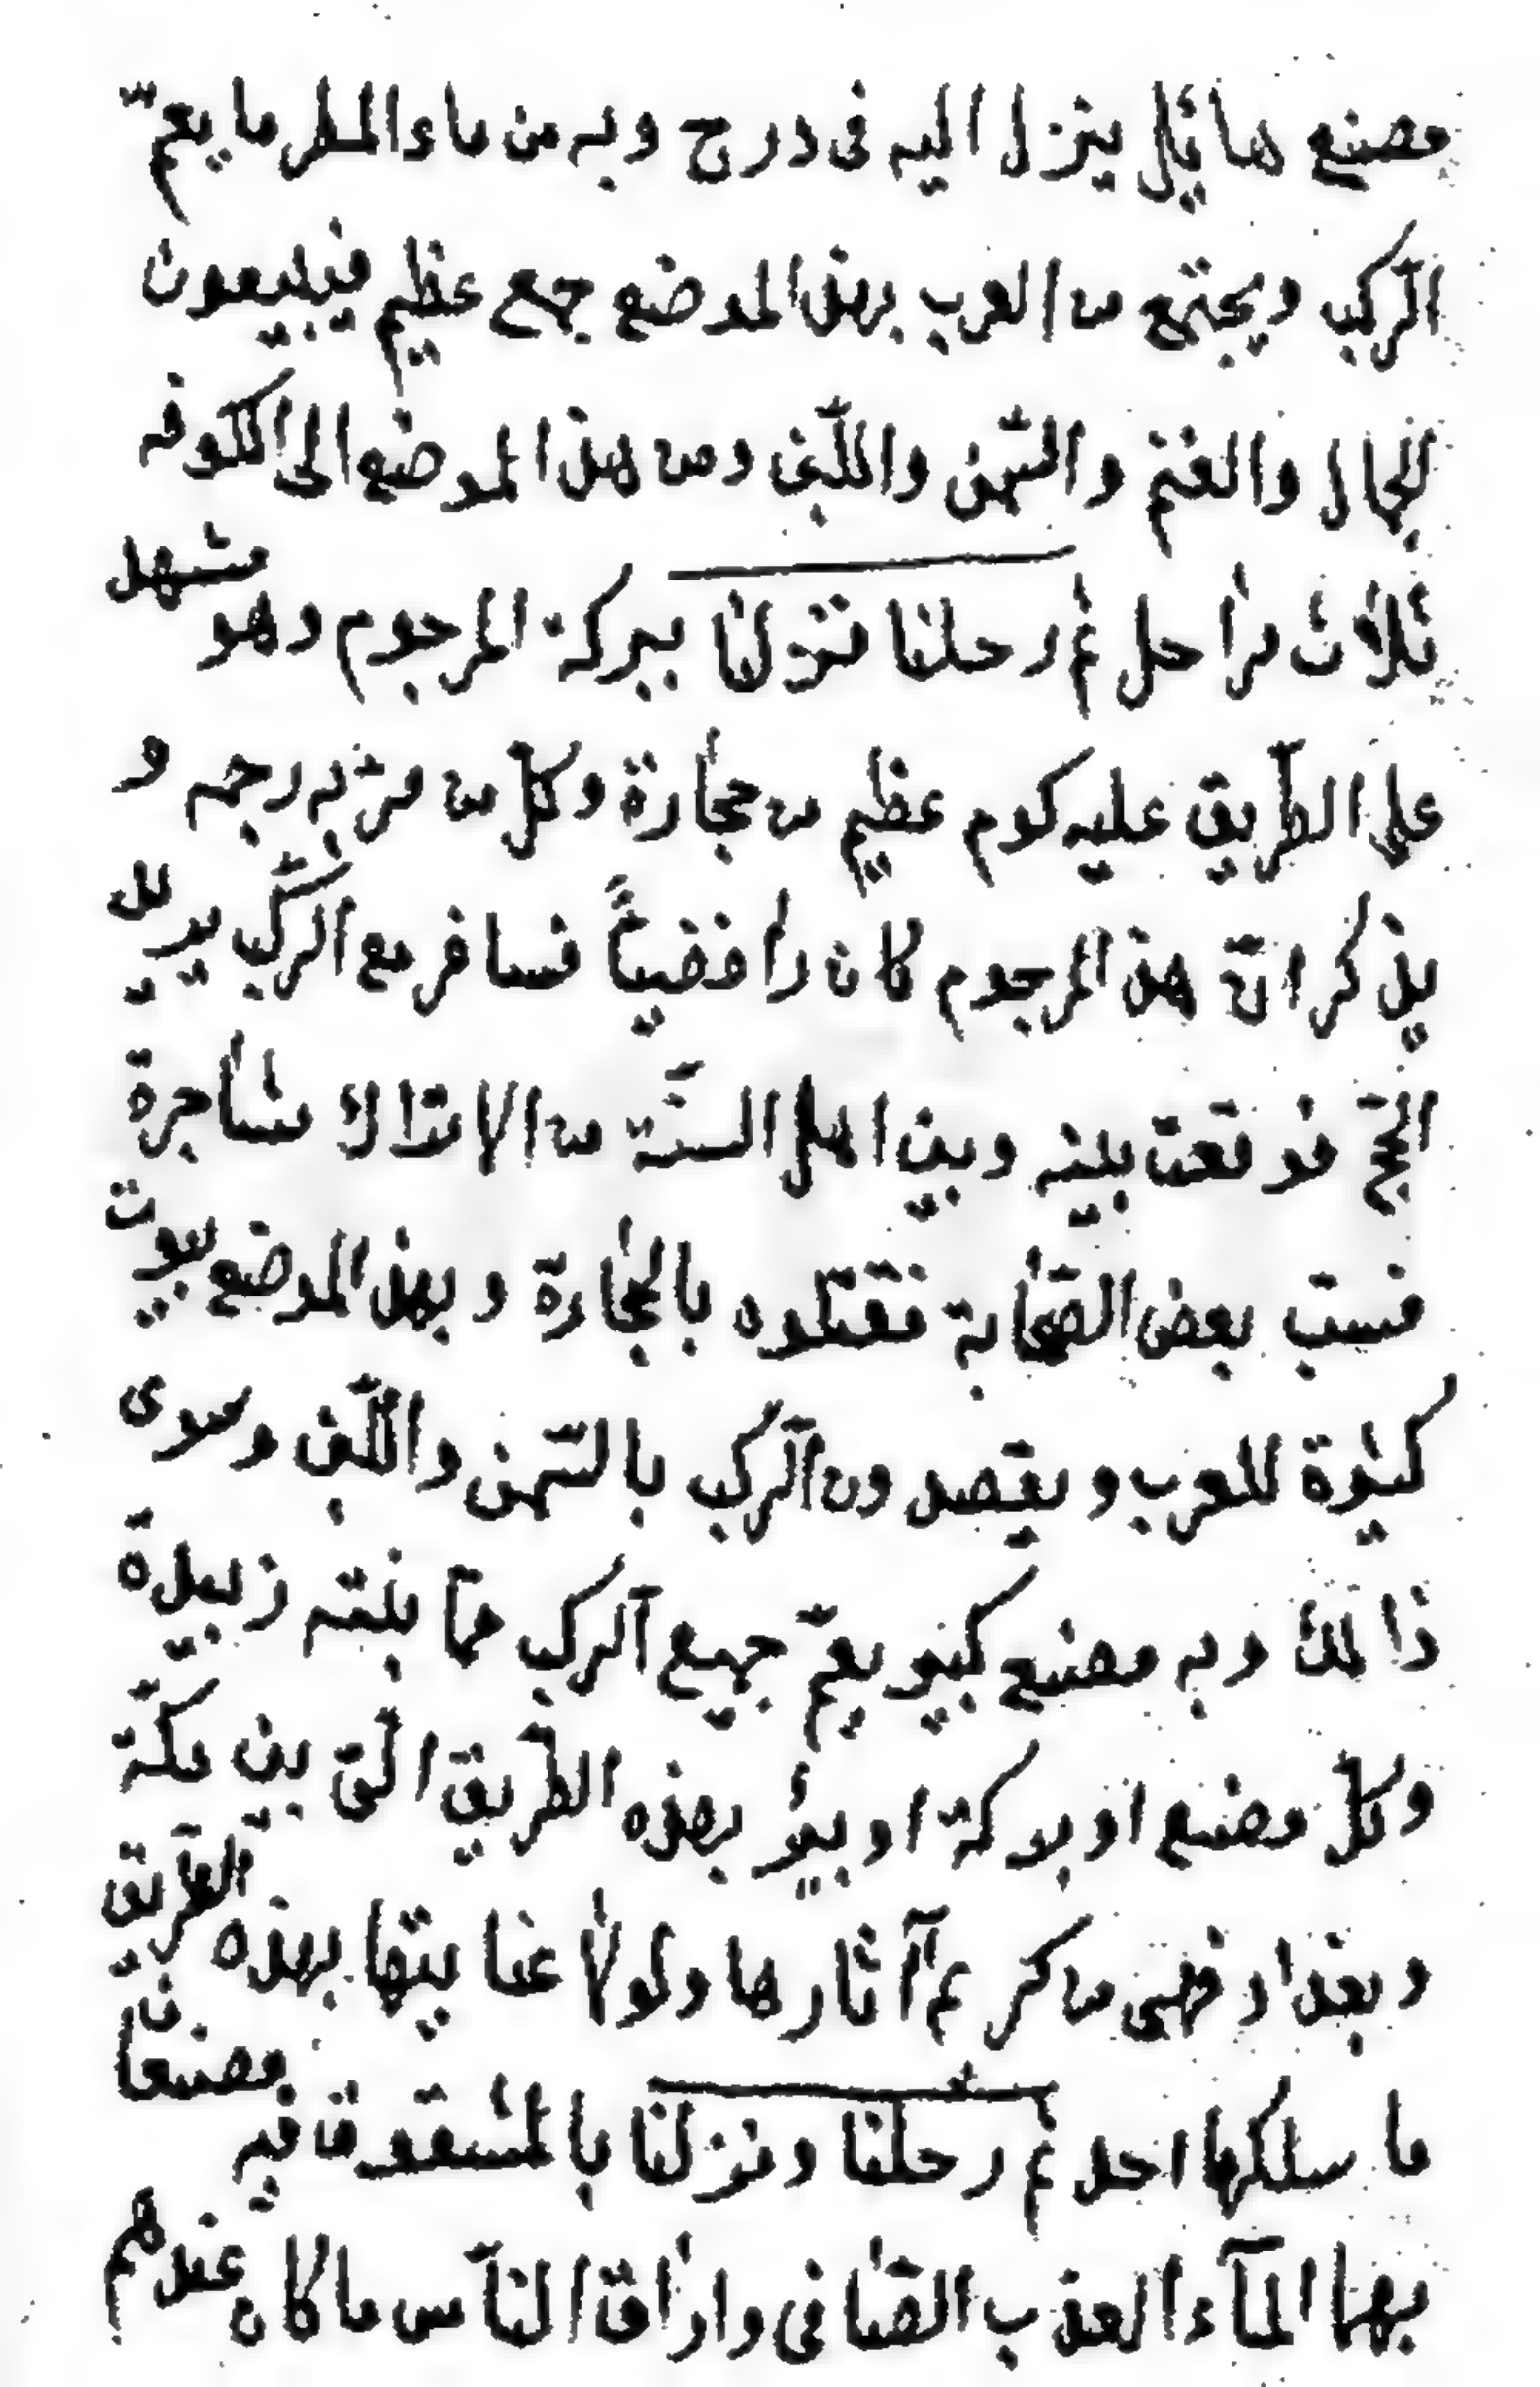 مصنع هائل ينزل اليه فى درج وبه من ماء المطر ما يعمّ
الركب ويجتمع من العرب بهذا الموضع جمع عظيم فيبيعون
الجمال والغنم والسّمن واللّبن ومن هذا الموضع الى الكوفه
ثلاث مراحل ثم رحلنا فنزلنا ببركة المرجوم وهو مشهد
على الطّريق عليه كوم عظيم من حجارة وكلّ من مرّ به رجمه و
يذكر انّ هذا المرجوم كان رافضيّاً فسافر مع الرّكب يريد
الحجّ فوقعت بينه وبين اهل السنّة من الاتراك مشاجرة
فسبّ بعض الصّحابة فقتلوه بالحجارة وبهذا الموضع بيوت
كثيرة للعرب ويقصدون الرّكب بالسّمن واللّبن وسوى
ذالك وبه مصنع كبير يعمّ جميع الرّكب ممّا بنته زبيدة
وكلّ مصنع او بركة او بئر بهذه الطّريق الّتى بين مكّة
وبغداد فهى من كريم آثارها ولولا عنايتها بهذه الطّريق
ما سلكها احد ثم رحلنا ونزلنا بالمشقوق فيه مصنعان
بهما المآء العذب الصّافى واراق النّاس ما كان عندهم